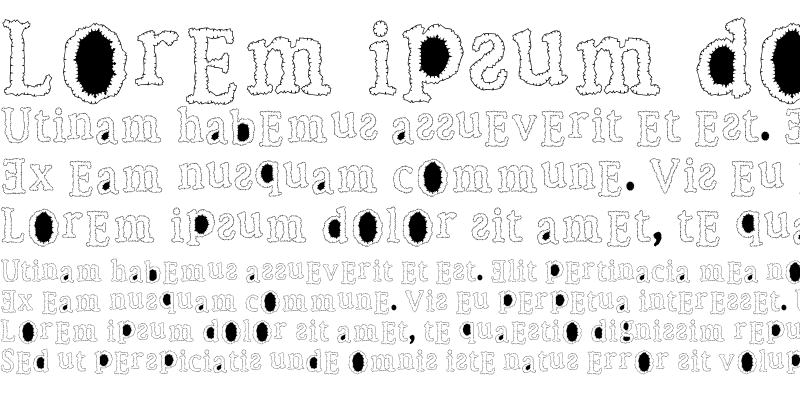 Lorem ipsum do
Utinam habemus assueverit et est.
Ex eam nusquam commune. Vis eu
Lorem ipsum dolor sit amet, te qua
Utinam habemus assueverit et est. Elit pertinacia mea no
Ex eam nusquam commune. Vis eu perpetua interesset.
Lorem ipsum dolor sit amet, te quaestio dignissim repu
Sed ut perspiciatis unde omnis iste natus error sit volup